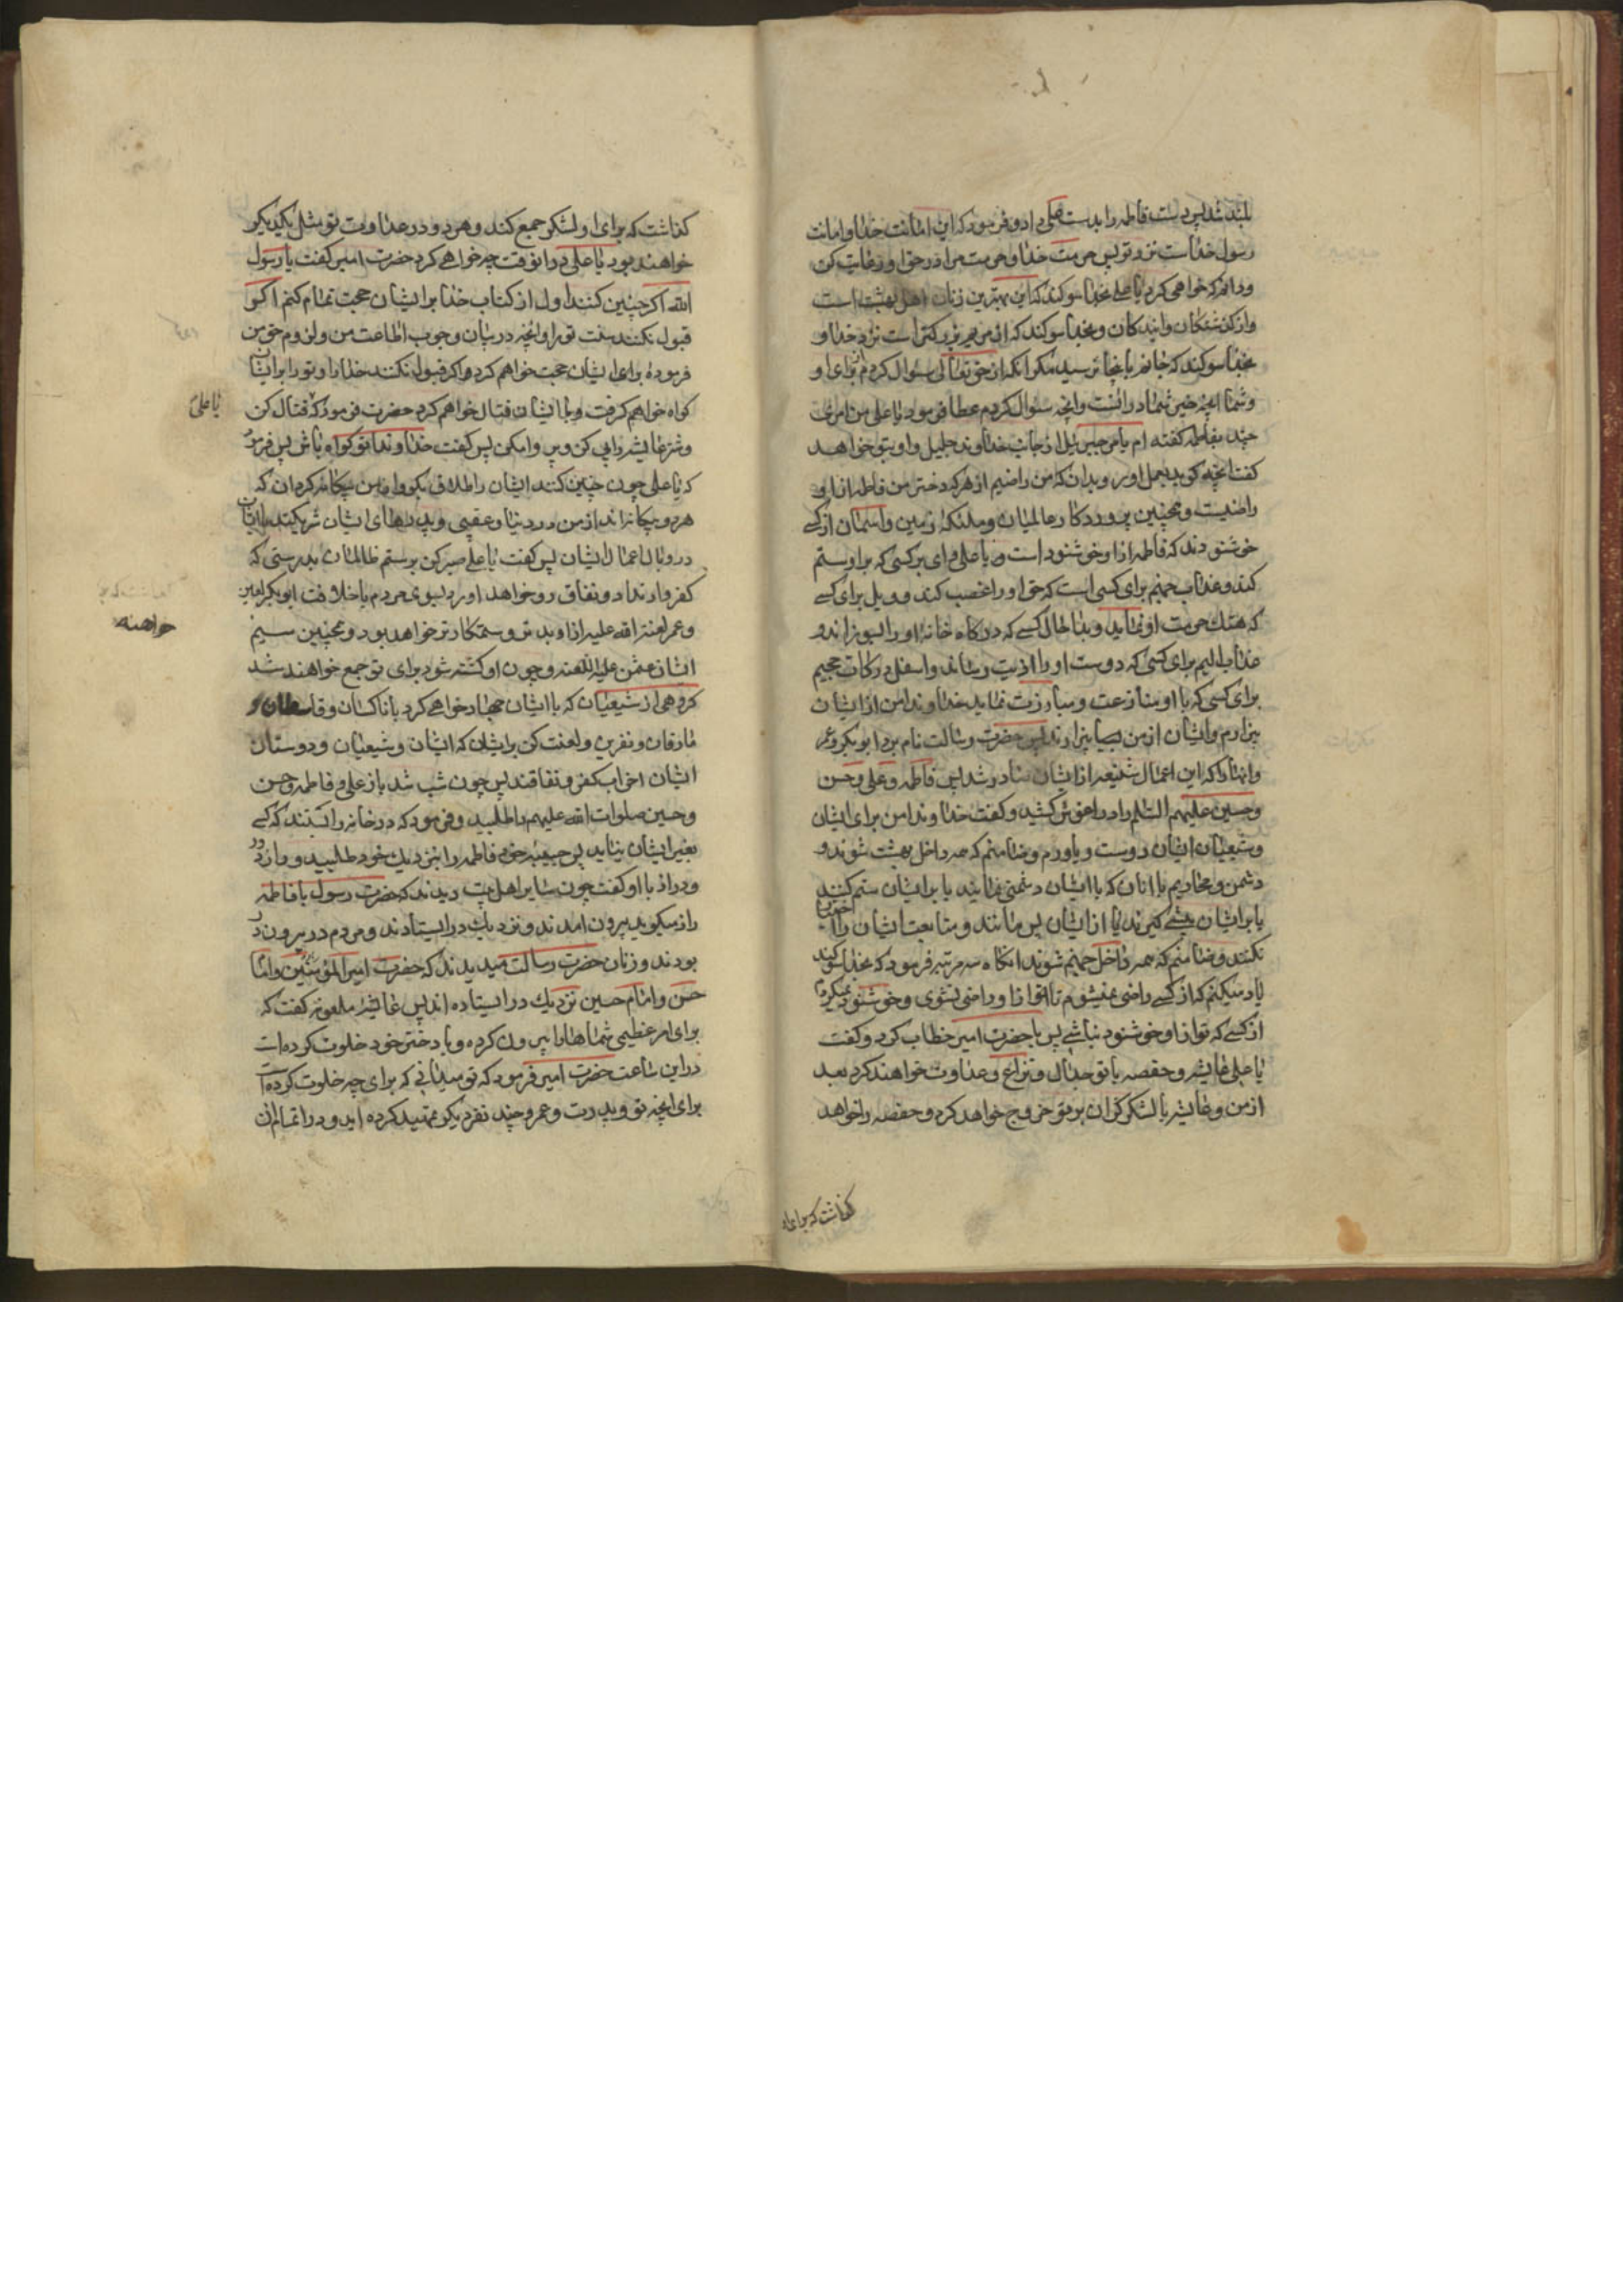 بلند شد پس دست فاطمه را بدست علی داد و فرمود که این امانت خدا و امانت
رسول خداست نزد تو پس حرمت خدا و حرمت مرا در حق او رعایت کن
و دانم که خواهی کرد یا علی بخدا سوکند که این بهترین زنان اهل بهشت است
و از کذشتکان و ایندکان و بخدا سوکند که این مریم بزرکتر است نزد خدا و
بخدا سوکند که جانم باینجا نرسید مکر انکه از حق تعالی سئوال کردم برای او
و شما انچه خیر شما در انست و انچه سئوال کردم عطا فرمود یا علی من امری
چند بفاطمه کفته ام بامر جبرئیل از جانب خداوند جلیل و او بتو خواهد
کفت انچه کوید بعمل اور و بدان که من راضیم از هر که دختر من فاطمه از او
راضیست و همچنین پروردکار عالمیان و ملئکه زمین و اسمان از کسی
خوشنودند که فاطمه از او خوشنود است و یا علی وای بر کسی که بر او ستم
کند و عذاب جهنم برای کسی است که حق او را غصب کند و ویل برای کسی
که هتک حرمت او نماید و بدا حال کسی که درکاه خانه او را بسوزاند و
عذاب الیم برای کسی که دوست او را اذیت رساند و اسفل درکات جحیم
برای کسی که با او منازعت و مبارزت نماید خداوندا من از ایشان
بیزارم و ایشان از من بیزارند پس حضرت رسالت نام برد ابوبکر و عمر
و انها را که این اعمال شنیعه از ایشان صادر شد پس فاطمه و علی و حسن
و حسین علیهم السلم را در اغوش کشید و کفت خداوندا من برای ایشان
و شیعیان ایشان دوست و یاورم و ضامنم که همه داخل بهشت شوند و
دشمن و محاربم با انان که با ایشان دشمنی نمایند یا بر ایشان ستم کنند
یا بر ایشان پیشی کیرند یا از ایشان پس مانند و متابعت ایشان را اختیار
نکنند و ضامنم که همه داخل جهنم شوند انکاه سه مرتبه فرمود که بخدا سوکند
یاد میکنم که از کسی راضی نمیشوم تا تو از او راضی نشوی و خوشنود نمیکردم
از کسی که تو از او خوشنود نباشی پس با حضرت امیر خطاب کرد و کفت
یا علی عایشه و حفصه با تو جدال و نزاع و عداوت خواهند کرد بعد
از من و عایشه با لشکر کران بر تو خروج خواهد کرد و حفصه را خواهد
کذاشت که برای او
کذاشت که برای او لشکر جمع کند و هر دو در عداوت تو مثل یکدیکر
خواهند بود یا علی در انوقت چه خواهی کرد حضرت امیر کفت یا رسول
الله اکر چنین کنند اول از کتاب خدا بر ایشان حجت تمام کنم اکر
قبول نکنند سنت تو را و انچه در بیان وجوب اطاعت من و لزوم حق من
فرموده برای ایشان حجت خواهم کرد و اکر قبول نکنند خدا را و تو را بر ایشان
کواه خواهم کرفت و با ایشان قتال خواهم کرد حضرت فرمود که قتال کن
یا علی
و شتر عایشه را پی کن و پروا مکن پس کفت خداوندا تو کواه باش پس فرمود
که یا علی چون چنین کنند ایشان را طلاق بکو و از من بیکانه کردان که
هر دو بیکانه اند از من در دنیا و عقبی و پدرهای ایشان شریکند با ایشان
در وبال اعمال ایشان پس کفت یا علی صبر کن بر ستم ظالمان بدرستی که
کفر و ارتداد و نفاق رو خواهد اورد بسوی مردم با خلافت ابوبکر لعین
و عمر لعنة الله علیه از او بدتر و ستمکارتر خواهد بود و همچنین سیم
خواهند
ایشان عثمن علیه اللعنه و چون او کشته شود برای تو جمع خواهند شد
کروهی از شیعیان که با ایشان جهاد خواهی کرد با ناکثان و قاسطان و
مارقان و نفرین و لعنت کن بر ایشان که ایشان و شیعیان و دوستان
ایشان احزاب کفر و نفاقند پس چون شب شد باز علی و فاطمه و حسن
و حسین صلوات الله علیهم را طلبید و فرمود که در خانه را بستند که کسی
بغیر ایشان نیاید پس حبیبه خود فاطمه را بنزدیک خود طلبید و راز دور
و دراز با او کفت چون سایر اهل بیت دیدند که حضرت رسول با فاطمه
راز میکوید بیرون امدند و نزدیک در ایستادند و مردم در بیرون در
بودند و زنان حضرت رسالت میدیدند که حضرت امیر المؤمنین و امام
حسن و امام حسین نزدیک در ایستاده اند پس عایشه ملعونه کفت که
برای امر عظیمی شماها را بیرون کرده و با دختر خود خلوت کرده است
در این ساعت حضرت امیر فرمود که تو میدانی که برای چه خلوت کرده است
برای انچه تو و پدرت و عمر و چند نفر دیکر تمهید کرده اید و در اتمام ان